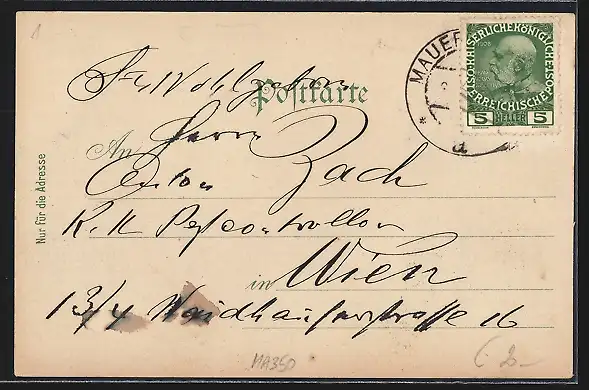 Sr. Wohlgeboren
Postkarte
Herrn
An
Anton Zach
K. K. Postcontrollor
in Wien
13/4 Waidhausenstrasse 16
Nur für die Adresse
MAUER
1908
KAISERLICHEKÖNIGLICHE
ÖSTERREICHISCHE POST
5 HELLER 5
MA350